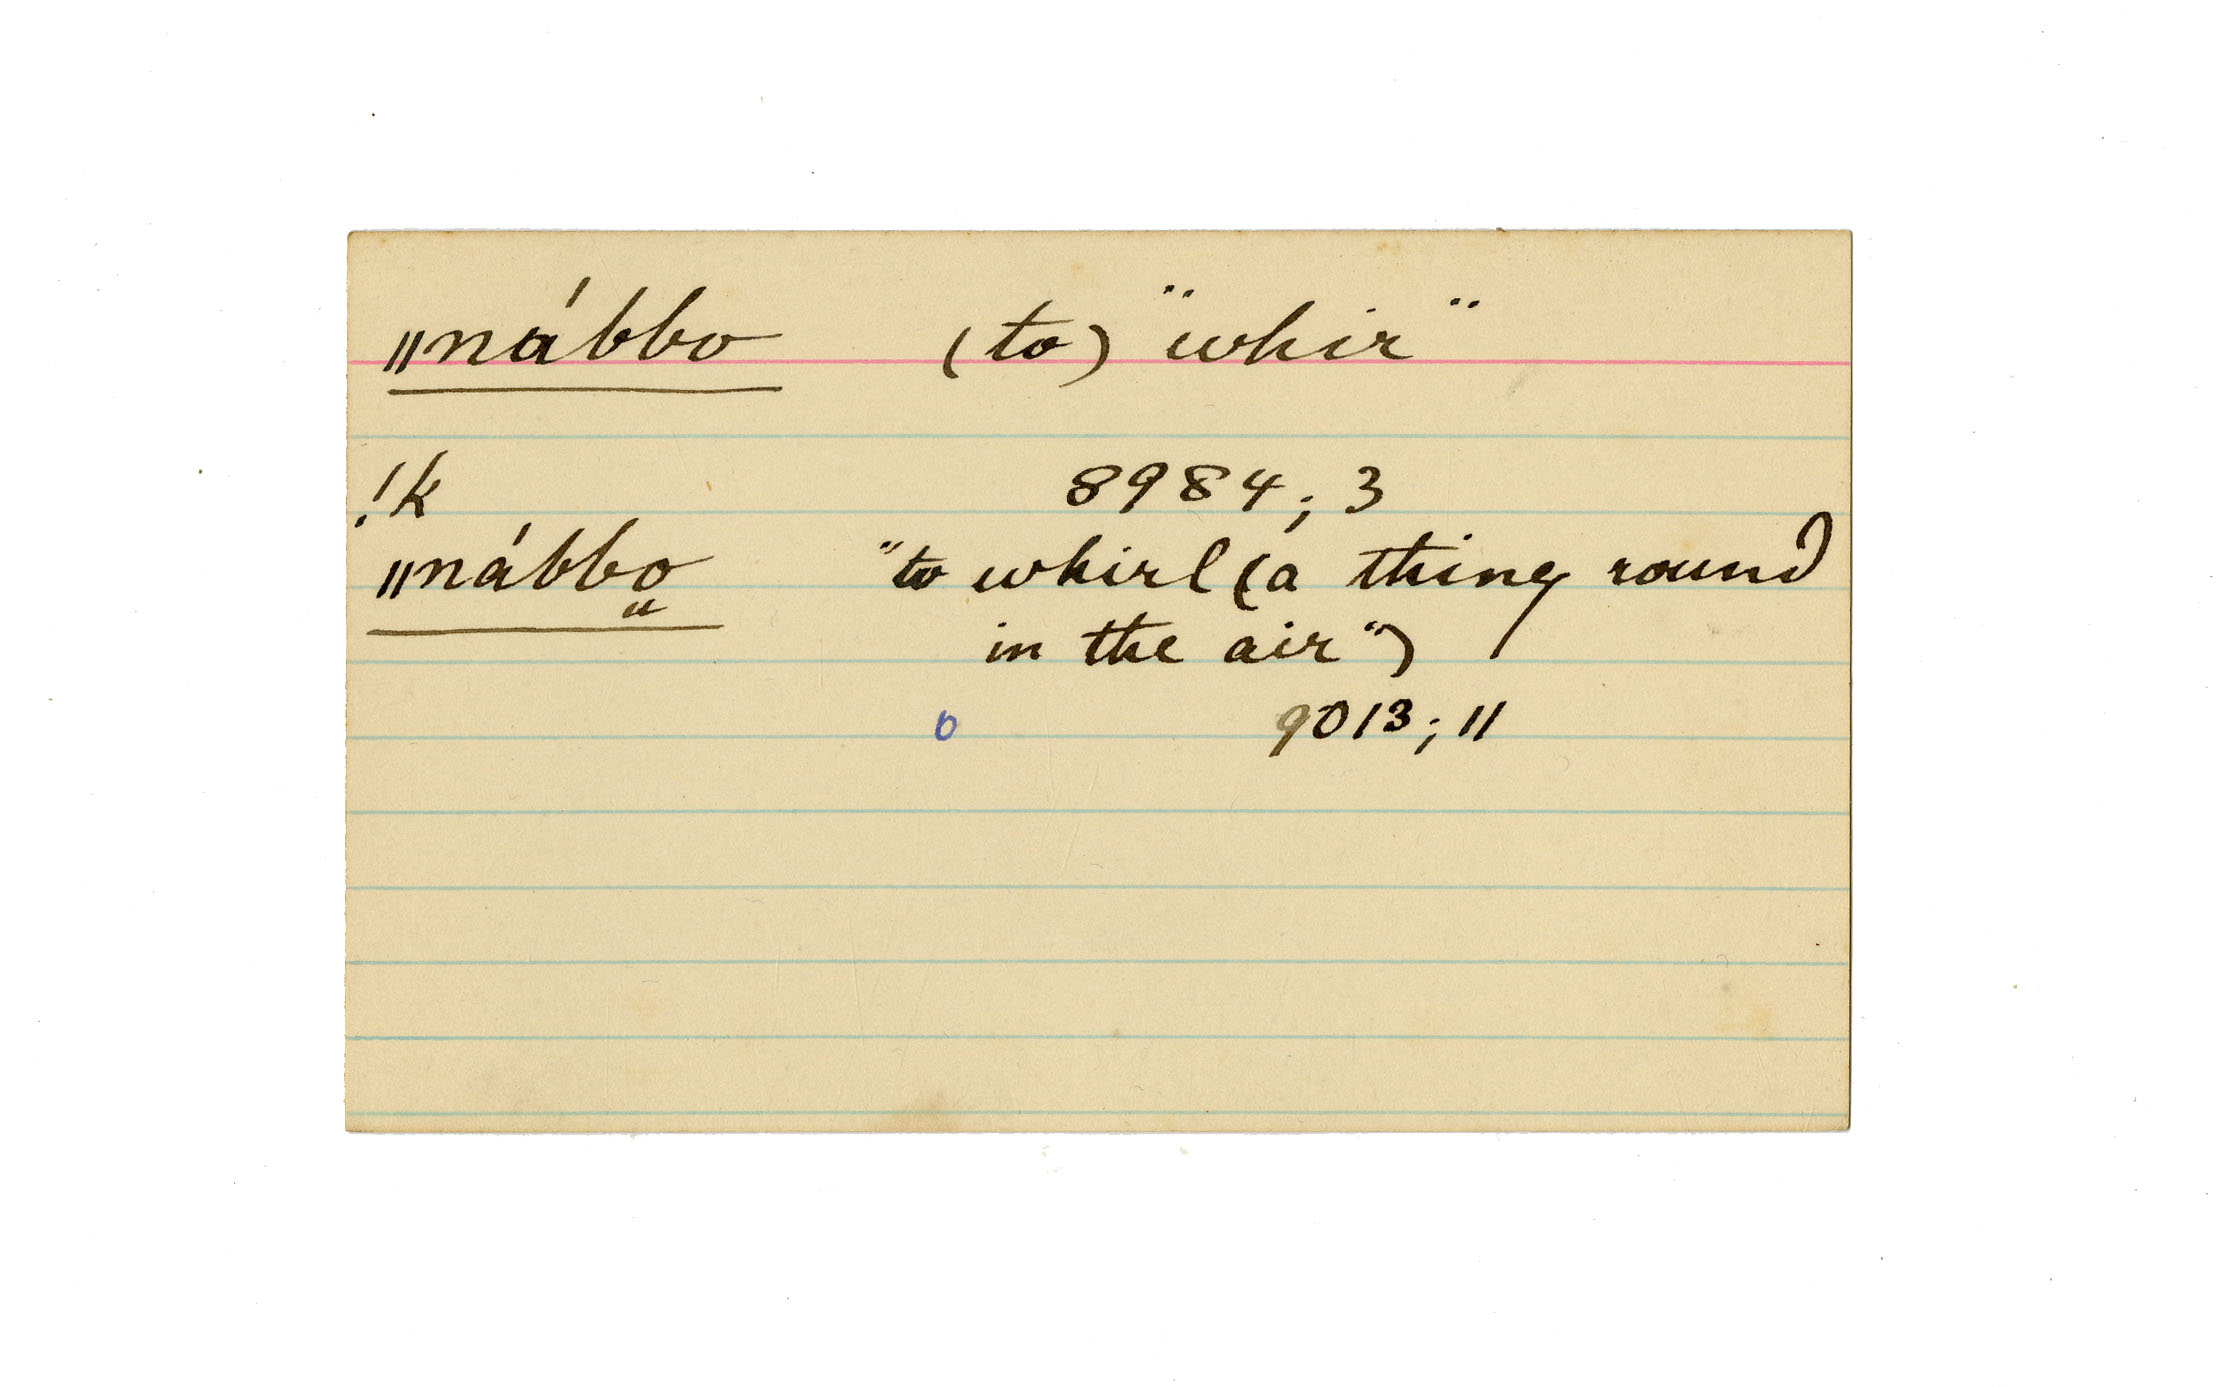 ǁnábbo (to) "whir"
!k 8984; 3
ǁnábbo̤ "to whirl (a thing round
in the air")
b 9013; 11